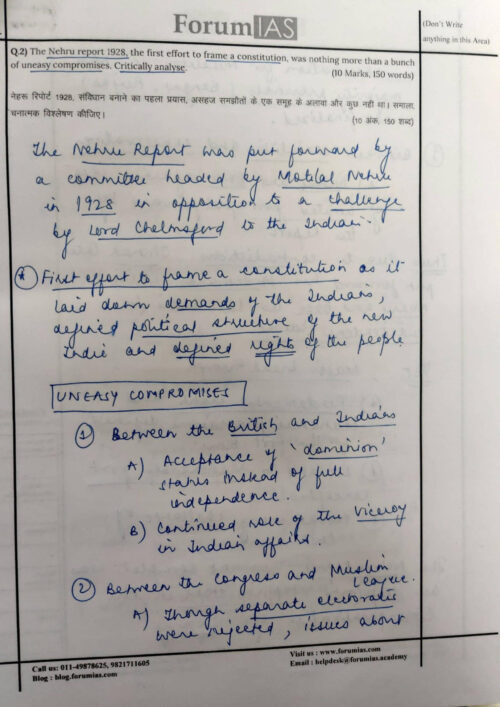 ForumIAS
(Don't Write
anything in this Area)
Q.2) The Nehru report 1928, the first effort to frame a constitution, was nothing more than a bunch
of uneasy compromises. Critically analyse. (10 Marks, 150 words)
नेहरू रिपोर्ट 1928, संविधान बनाने का पहला प्रयास, असहज समझौतों के एक समूह के अलावा और कुछ नहीं था। समालो
चनात्मक विश्लेषण कीजिए। (10 अंक, 150 शब्द)
The Nehru Report was put forward by
a committee headed by Motilal Nehru
in 1928 in opposition to a challenge
by Lord Chelmsford to the Indians.
First effort to frame a constitution as it
laid down demands of the Indians,
defined political structure of the new
India and defined rights of the people
UNEASY COMPROMISES
1 Between the British and Indians
A) Acceptance of 'dominion'
status instead of full
independence.
B) Continued role of the Viceroy
in Indian affairs.
2 Between the Congress and Muslim
League.
A) Though separate electorates
were rejected, issues about
Call us: 011-49878625, 9821711605
Blog : blog.forumias.com
Visit us : www.forumias.com
Email : helpdesk@forumias.academy